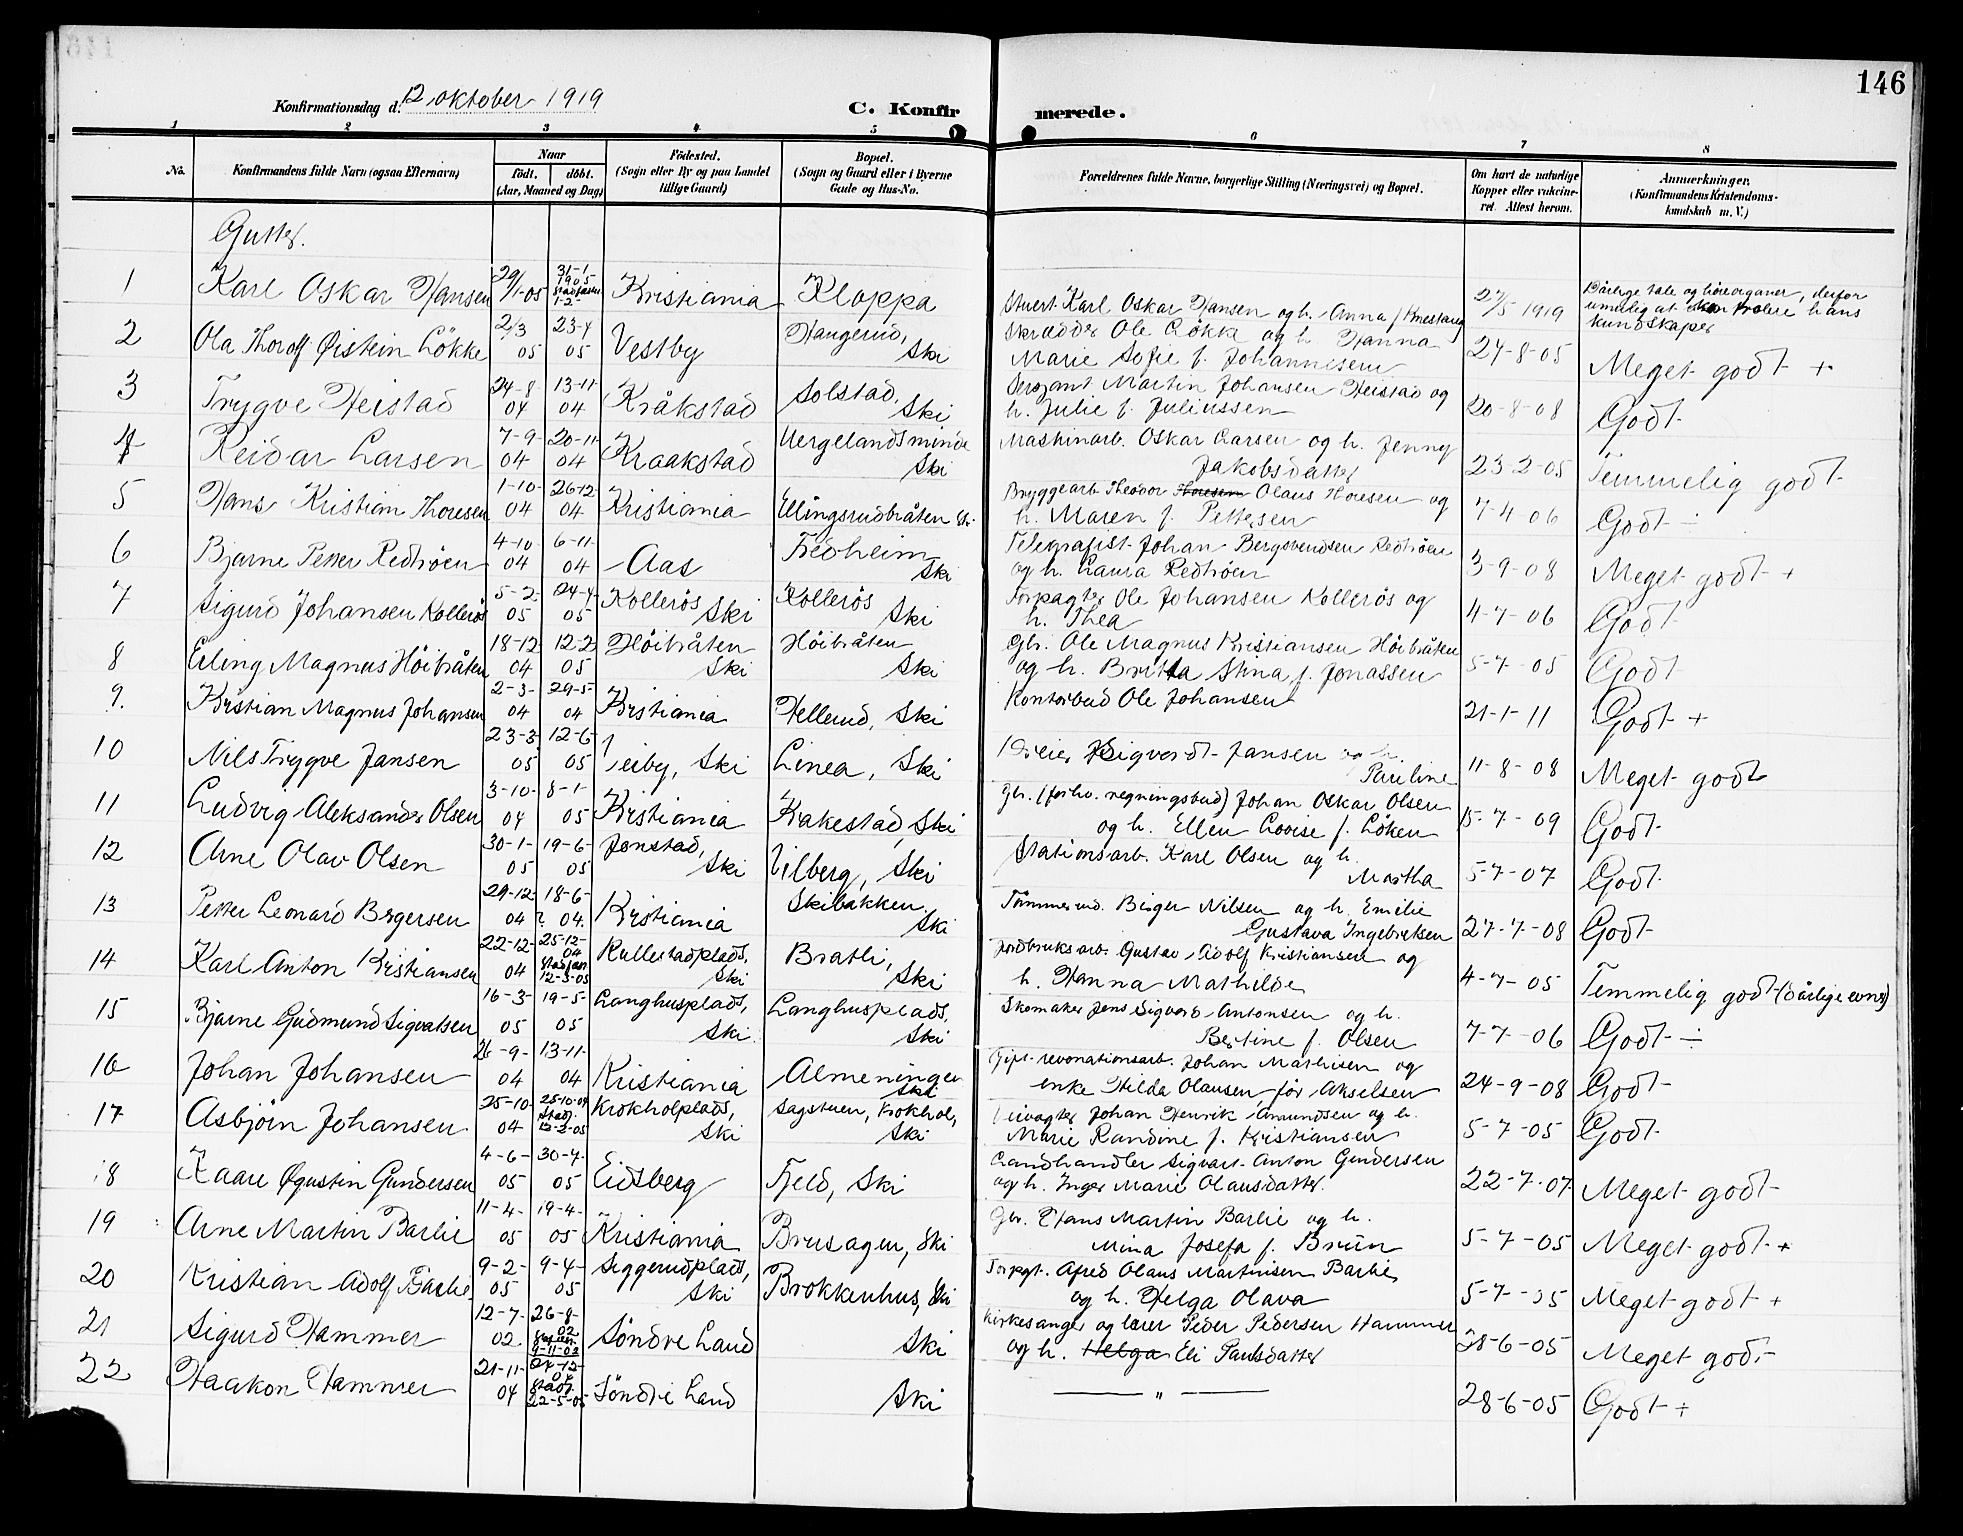 146
Konfirmationsdag d. 12 oktober 1919
C. Konfirmerede.
1 2 3 4 5 6 7 8
No. Konfirmandens fulde Navn (ogsaa Efternavn) Naar født. døbt. (Aar, Maaned og Dag) Fødested. (Sogn eller By og paa Landet tillige Gaard) Bopæl. (Sogn og Gaard eller i Byerne Gade og Hus-No. Forældrenes fulde Navne, borgerlige Stilling (Næringsvei) og Bopæl. Om havt de naturlige Kopper eller vakcineret. Attest herom. Anmærkninger. (Konfirmandens Kristendomskundskab m. V.)
Gutter.
1 Karl Oskar Hansen 29/1-05 31-1 1905 1-2- Kristiania Kloppa Stuert Karl Oskar Hansen og h. Anna f. 27/5 1919 Dårlige tale og høreorganer, derfor umulig at prøve hans kundskaper
2 Ola Thorolf Øistein Løkke 2/3 05 23-4 05 Vestby Haugerud, Ski Skrædder Ole Løkke og h. Hanna Marie Sofie f. Johannesen 24-8-05 Meget godt +
3 Trygve Heistad 24-8 04 13-11 04 Kråkstad Solstad, Ski Sergant Martin Johansen Heistad og h. Julie f. Juliussen 20-8-08 Godt
4 Reidar Larsen 7-9- 04 20-11 04 Kraakstad Vergelandsminde Ski Maskinarb. Oskar Larsen og h. Jenny Jakobsdatter 23-2-05 Temmelig godt
5 Hans Kristian Thoresen 1-10- 04 26-12 04 Kristiania Ellingsrudbråten Ski Bryggearb. Theodor Olaus Thoresen og h. Maren f. Pettersen 7-4-06 Godt ÷
6 Bjarne Petter Redtrøen 4-10- 04 6-11- 04 Aas Fredheim Ski Telegrafist Johan Bergsvendsen Redtrøen og h. Laura Redtrøen 3-9-08 Meget godt +
7 Sigurd Johansen Kollerøs 5-2- 05 24-4 05 Kollerøs Ski Kollerøs Ski Forpagter Ole Johansen Kollerøs og h. Thea 4-7-06 Godt
8 Erling Magnus Høibråten 18-12 04 12-2 05 Høibråten Ski Høibråten Ski Gbr. Ole Magnus Kristiansen Høibråten og h. Britta Stina f. Jonassen 5-7-05 Godt
9. Kristian Magnus Johansen 2-3- 04 29-5- 04 Kristiania Hellerud, Ski Kontorbud Ole Johansen 21-1-11 Godt +
10 Nils Trygve Jansen 23-3 05 12-6- 05 Veiby, Ski Linea, Ski Dreier Sigvardt Jansen og h. Pauline 11-8-08 Meget godt
11 Ludvig Aleksander Olsen 3-10- 04 8-1- 05 Kristiania Kakestad, Ski Gbr. (forhv. regningsbud) Johan Oskar Olsen og h. Ellen Lovise f. Løken 15-7-09 Godt
12 Arne Olav Olsen 30-1- 05 19-6- 05 Jonstad, Ski Vilberg, Ski Stationsarb. Karl Olsen og h. Martha 5-7-07 Godt
13 Petter Leonard Bergersen 29-12- 04 ? 18-6- 04. Kristiania Skibakken Ski Tømmermd. Birger Nilsen og h. Emilie Gustava Ingebretsen 27-7-08 Godt
14 Karl Anton Kristiansen 22-12- 04 25-12- 04 12-3-05 Rullestadplads, Ski Bratli, Ski Jordbruksarb. Gustav Adolf Kristiansen og h. Hanna Mathilde 4-7-05 Temmelig godt (dårlige evner)
15 Bjarne Gudmund Sigvartsen 16-3- 05 19-5- 05 Langhusplads, Ski Langhusplads, Ski Skomaker Jens Sigvard Antonsen og h. Bertine f. Olsen 7-7-06 Godt ÷
16 Johan Johansen 26-9- 04 13-11- 04 Kristiania Almeningen Ski Johan Mathisen og enke Hilda Olausen, før Akselsen 24-9-08 Godt
17 Asbjørn Johansen 25-10- 04 25-10-04 12-2-05 Krokholplads, Ski Sagstuen, Krokhol, Ski Veivogter Johan Henrik Amundsen og h. Marie Randine f. Kristiansen 5-7-05 Godt
18 Kaare Øgustin Gundersen 4-6- 05 30-7- 05 Eidsberg Fjeld, Ski Landhandler Sigvart Anton Gundersen og h. Inger Marie Olausdatter. 22-7-07 Meget godt
19 Arne Martin Barlie 11-4- 05 19-4- 05 Kristiania Brusagen, Ski Gbr. Hans Martin Barlie og h. Mina Josefa f. Brun 5-7-05 Meget godt +
20 Kristian Adolf Barlie 9-2- 05 9-4- 05 Seggerudplads, Ski Brokkenhus, Ski Forpgt. Afred Olaus Martinisen Barlie og h. Helga Olava 5-7-05 Meget godt +
21 Sigurd Hammer 12-7- 02 26-8- 02 9-11-02 Søndre Land Ski Kirkesanger og lærer Peder Pedersen Hammer og h. Helga Eli Paulsdatter 28-6-05 Meget godt
22 Haakon Hammer 21-11- 04 24-12- 04 22-5-05 Søndre Land Ski — " — 28-6-05 Godt +